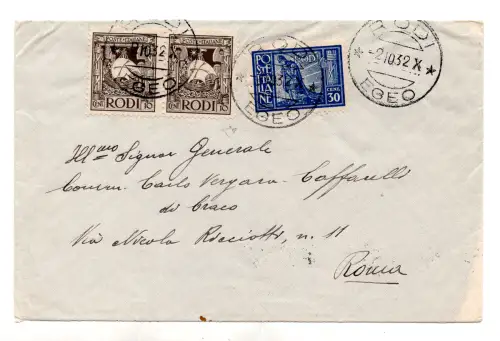 POSTE ITALIANE POSTE ITALIANE
CENT. RODI 10 CENT. RODI 10
POSTE ITALIANE
RODI
CENT. 30
RODI
EGEO
RODI
-2.10.32.X
EGEO
Ill.mo Signor Generale
Comm. Carlo Vergara Caffarelli
di Craco
Via Nicola Ricciotti, n. 11
Roma